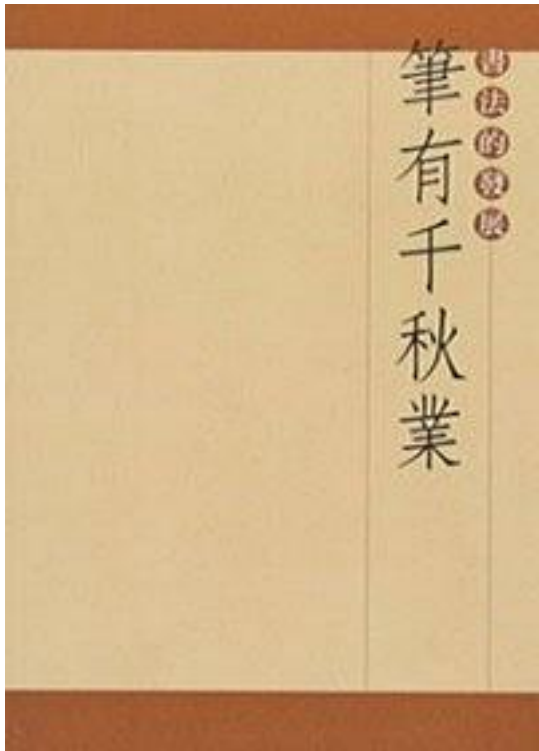 書法的發展
筆有千秋業